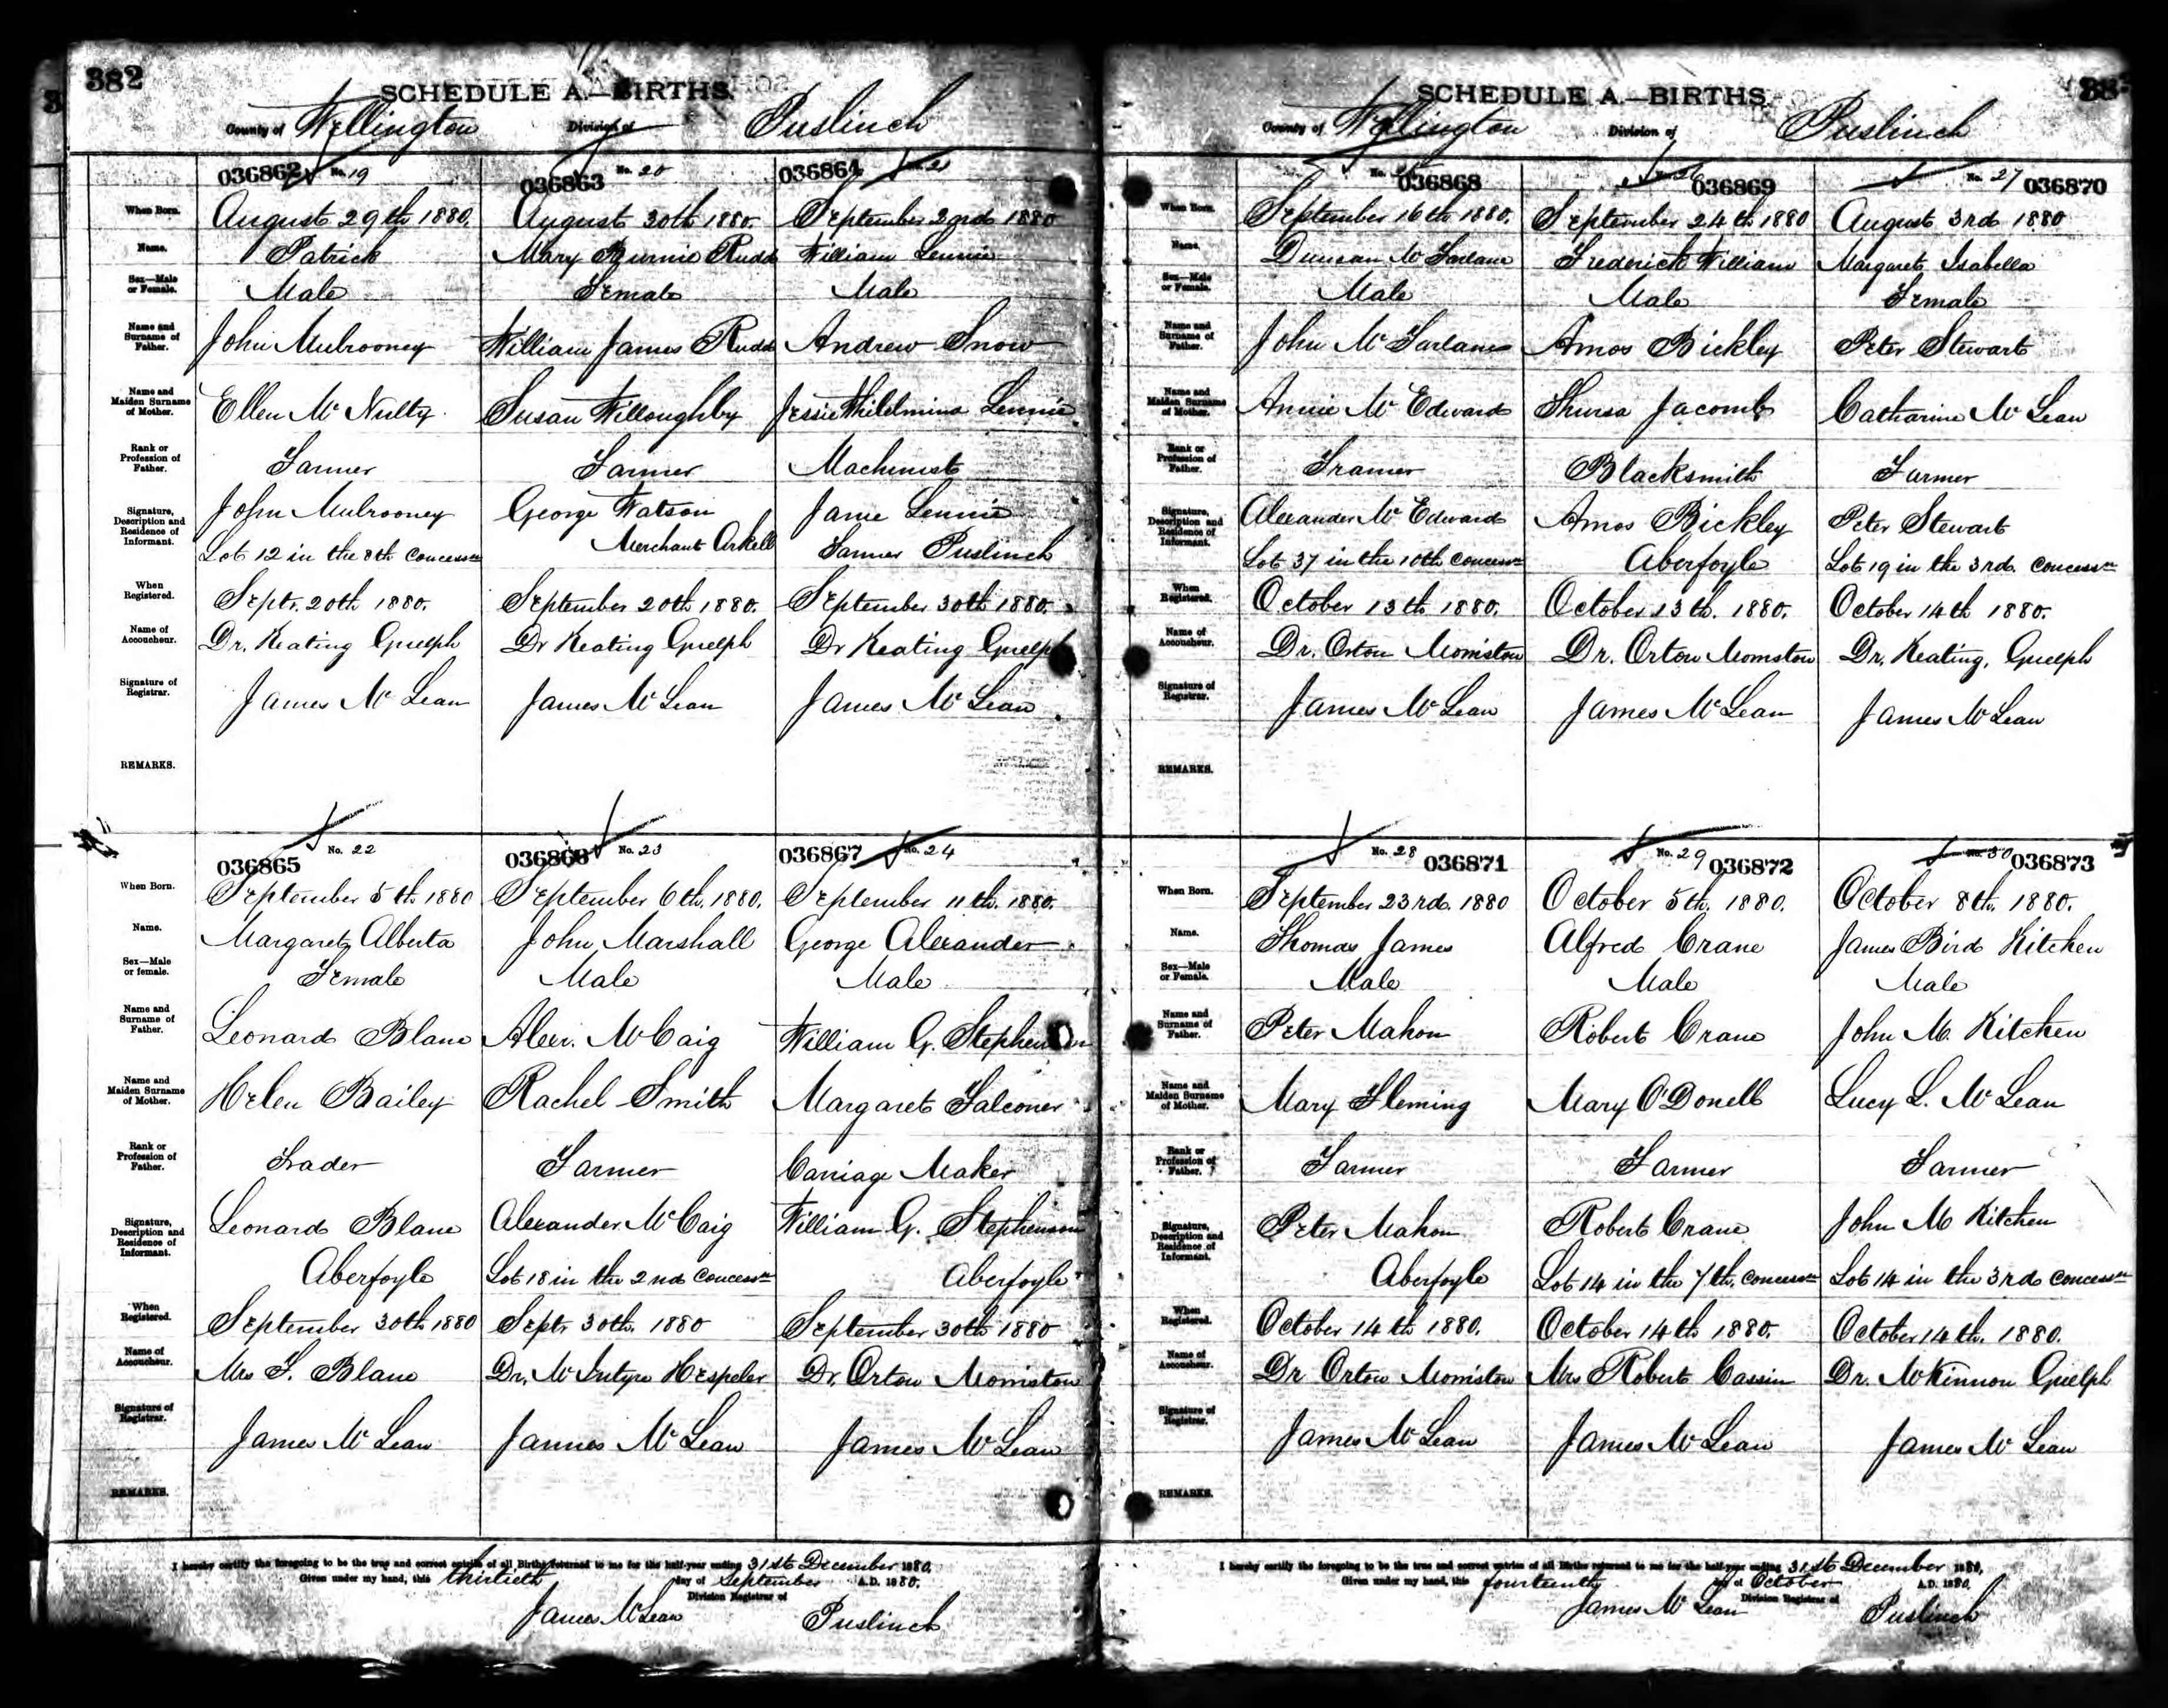 382
SCHEDULE A.—BIRTHS.
County of Wellington Division of Puslinch
036862 No. 19 036863 No. 20 036864 21
When Born. August 29th 1880. August 30th 1880. September 2nd 1880
Name. Patrick Mary Rudd William Lennie
Sex—Male or Female. Male Female Male
Name and Surname of Father. John Mulrooney William James Rudd Andrew Snow
Name and Maiden Surname of Mother. Ellen Mc Nulty. Susan Willoughby Jessie Whilelmina Lennie
Rank or Profession of Father. Farmer Farmer Machinist
Signature, Description and Residence of Informant. John Mulrooney George Watson Jane Lennie
Lot 12 in the 8th Concession Merchant Arkell Farmer Puslinch
When Registered. Septr. 20th 1880. September 20th 1880. September 30th 1880.
Name of Accoucheur. Dr. Keating Guelph Dr Keating Guelph Dr Keating Guelph
Signature of Registrar. James Mc Lean James Mc Lean James Mc Lean
REMARKS.
036865 No. 22 036866 No. 23 036867 No. 24
When Born. September 5th 1880 September 6th. 1880. September 11th. 1880.
Name. Margaret Alberta John Marshall George Alexander
Sex—Male or female. Female Male Male
Name and Surname of Father. Leonard Blane Alexr. McCaig William G. Stephenson
Name and Maiden Surname of Mother. Helen Bailey Rachel Smith Margaret Falconer
Rank or Profession of Father. Trader Farmer Carriage Maker
Signature, Description and Residence of Informant. Leonard Blane Alexander McCaig William G. Stephenson
Aberfoyle Lot 18 in the 2nd Concession Aberfoyle
When Registered. September 30th 1880 Septr 30th. 1880 September 30th 1880
Name of Accoucheur. Mrs Blane Dr. McIntyre Hespeler Dr. Orton Morriston
Signature of Registrar. James Mc Lean James Mc Lean James Mc Lean
REMARKS.
I hereby certify the foregoing to be the true and correct entries of all Births returned to me for the half-year ending 31st December 1880.
Given under my hand, this thirtieth day of September A.D. 1880.
James McLean Division Registrar of Puslinch
SCHEDULE A.—BIRTHS.
County of Wellington Division of Puslinch
036868 26 036869 No. 27 036870
When Born. September 16th 1880. September 24th 1880 August 3rd 1880
Name. Duncan Mc Farlane Frederick William Margaret Isabella
Sex—Male or Female. Male Male Female
Name and Surname of Father. John Mc Farlane Amos Bickley Peter Stewart
Name and Maiden Surname of Mother. Annie Mc Edward Jacomb Catharine Mc Lean
Rank or Profession of Father. Framer Blacksmith Farmer
Signature, Description and Residence of Informant. Alexander Mc Edward Amos Bickley Peter Stewart
Lot 37 in the 10th Concession Aberfoyle Lot 19 in the 3rd Concession
When Registered. October 13th 1880. October 13th. 1880. October 14th 1880.
Name of Accoucheur. Dr. Orton Morriston Dr. Orton Morriston Dr. Keating, Guelph
Signature of Registrar. James Mc Lean James Mc Lean James Mc Lean
REMARKS.
No. 28 036871 No. 29 036872 No. 30 036873
When Born. September 23rd. 1880 October 5th. 1880. October 8th. 1880.
Name. Thomas James Alfred Crane James Bird Kitchen
Sex—Male or Female. Male Male Male
Name and Surname of Father. Peter Mahon Robert Crane John M. Kitchen
Name and Maiden Surname of Mother. Mary Fleming Mary O'Donell Lucy L. Mc Lean
Rank or Profession of Father. Farmer Farmer Farmer
Signature, Description and Residence of Informant. Peter Mahon Robert Crane John M Kitchen
Aberfoyle Lot 14 in the 7th. Concession Lot 14 in the 3rd Concession
When Registered. October 14th 1880. October 14th 1880. October 14th. 1880.
Name of Accoucheur. Dr Orton Morriston Mrs Robert Cassin Dr. McKinnon Guelph
Signature of Registrar. James Mc Lean James Mc Lean James Mc Lean
REMARKS.
I hereby certify the foregoing to be the true and correct entries of all Births returned to me for the half-year ending 31st December 1880.
Given under my hand, this fourteenth day of October A.D. 1880.
James Mc Lean Division Registrar of Puslinch